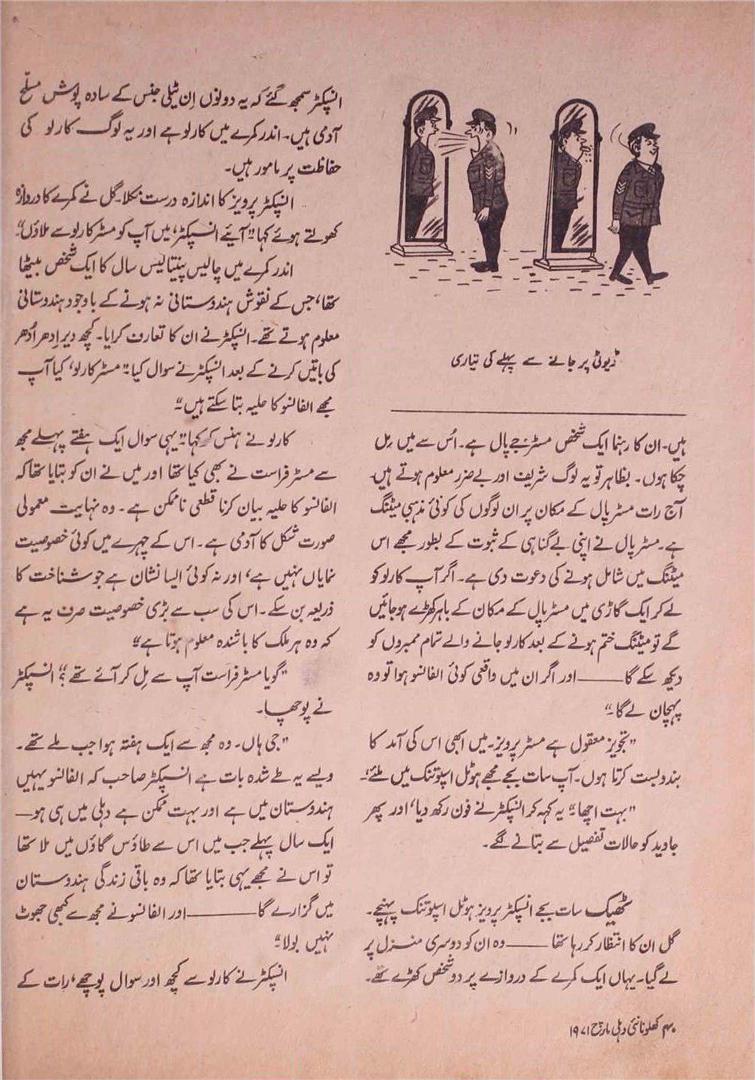 ڈیوٹی پر جانے سے پہلے کی تیاری
ہیں۔ ان کا رہنما ایک شخص مسٹر جے پال ہے۔ اُس سے میں مِل
چکا ہوں۔ بظاہر تو یہ لوگ شریف اور بے ضرر معلوم ہوتے ہیں۔
آج رات مسٹر پال کے مکان پر ان لوگوں کی کوئی مذہبی میٹنگ
ہے۔ مسٹر پال نے اپنی بے گناہی کے ثبوت کے بطور مجھے اس
میٹنگ میں شامل ہونے کی دعوت دی ہے۔ اگر آپ کارلو کو
لے کر ایک گاڑی میں مسٹر پال کے مکان کے باہر کھڑے ہو جائیں
گے تو میٹنگ ختم ہونے کے بعد کارلو جانے والے تمام ممبروں کو
دیکھ سکے گا ——— اور اگر ان میں واقعی کوئی الفانسو ہوا تو وہ
پہچان لے گا۔“
”تجویز معقول ہے مسٹر پرویز۔ میں ابھی اس کی آمد کا
بندوبست کرتا ہوں۔ آپ سات بجے مجھے ہوٹل اسپوتنک میں ملئے۔“
”بہت اچھا۔“ یہ کہہ کر انسپکٹر نے فون رکھ دیا، اور پھر
جاوید کو حالات تفصیل سے بتانے لگے۔
ٹھیک سات بجے انسپکٹر پرویز ہوٹل اسپوتنک پہنچے۔
گل ان کا انتظار کر رہا تھا ——— وہ ان کو دوسری منزل پر
لے گیا۔ یہاں ایک کمرے کے دروازے پر دو شخص کھڑے تھے۔
انسپکٹر سمجھ گئے کہ یہ دونوں اِن ٹیلی جنس کے سادہ پوش مسلّح
آدمی ہیں۔ اندر کمرے میں کارلو ہے اور یہ لوگ کارلو کی
حفاظت پر مامور ہیں۔
انسپکٹر پرویز کا اندازہ درست نکلا۔ گل نے کمرے کا دروازہ
کھولتے ہوئے کہا ”آیئے انسپکٹر، میں آپ کو مسٹر کارلو سے ملاؤں۔“
اندر کمرے میں چالیس پینتالیس سال کا ایک شخص بیٹھا
تھا، جس کے نقوش ہندوستانی نہ ہونے کے باوجود ہندوستانی
معلوم ہوتے تھے۔ انسپکٹر نے ان کا تعارف کرایا۔ کچھ دیر اِدھر اُدھر
کی باتیں کرنے کے بعد انسپکٹر نے سوال کیا ”مسٹر کارلو، کیا آپ
مجھے الفانسو کا حلیہ بتا سکتے ہیں۔“
کارلو نے ہنس کر کہا ”یہی سوال ایک ہفتے پہلے مجھ
سے مسٹر فراست نے بھی کیا تھا اور میں نے ان کو بتایا تھا کہ
الفانسو کا حلیہ بیان کرنا قطعی ناممکن ہے۔ وہ نہایت معمولی
صورت شکل کا آدمی ہے۔ اس کے چہرے میں کوئی خصوصیت
نمایاں نہیں ہے، اور نہ کوئی ایسا نشان ہے جو شناخت کا
ذریعہ بن سکے۔ اس کی سب سے بڑی خصوصیت صرف یہ ہے
کہ وہ ہر ملک کا باشندہ معلوم ہوتا ہے۔“
”گویا مسٹر فراست آپ سے مِل کر آئے تھے؟“ انسپکٹر
نے پوچھا۔
”جی ہاں۔ وہ مجھ سے ایک ہفتہ ہوا جب ملے تھے۔
ویسے یہ طے شدہ بات ہے انسپکٹر صاحب کہ الفانسو یہیں
ہندوستان میں ہے اور بہت ممکن ہے دہلی میں ہی ہو —
ایک سال پہلے جب میں اس سے طاؤس گاؤں میں ملا تھا
تو اس نے مجھے یہی بتایا تھا کہ وہ باقی زندگی ہندوستان
میں گزارے گا ——— اور الفانسو نے مجھ سے کبھی جھوٹ
نہیں بولا۔“
انسپکٹر نے کارلو سے کچھ اور سوال پوچھے، رات کے
۴۰ کھلونا نئی دہلی مارچ ۱۹۷۱